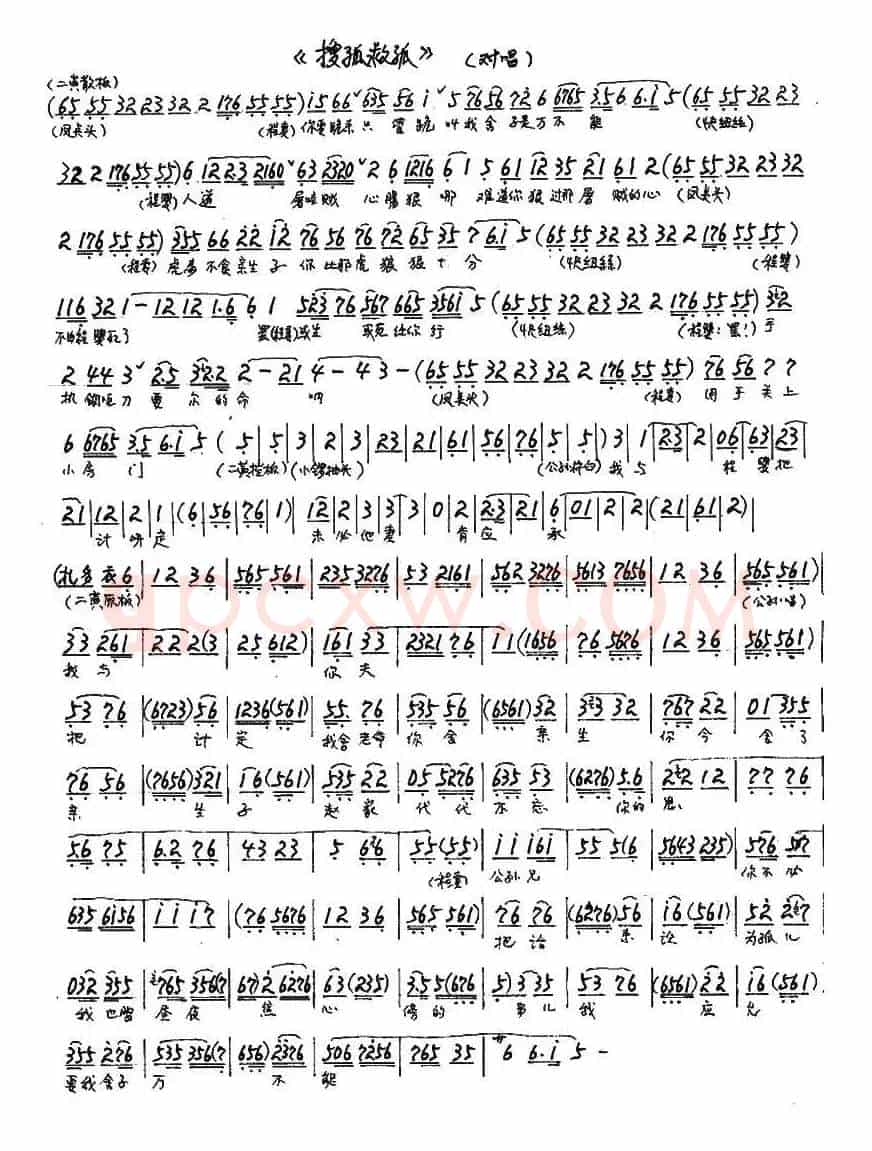 《搜孤救孤》 (对唱)
(二黄散板)
(65 55 32 23 32 2 176 55 55) i5 66 635 56 i 5 76 56 72 6 6765 3.56 6.i 5 (65 55 32 23
(凤点头) (程婴) 你要跪来只管跪 叫我舍子是万不能 (快纽丝)
32 2 176 55 55) 6 12 23 2160 63 2320 2 6 1216 6 1 5 61 12 35 21 61 2 (65 55 32 23 32
(程婴) 人道 屠贼心肠狠 哪 难道你狠过那屠贼的心 (凤点头)
2 176 55 55) 355 66 22 12 76 56 76 72 65 35 7 6.i 5 (65 55 32 23 32 2 176 55 55)
(程婴) 虎毒不食亲生子 你比那虎狼狠十分 (快纽丝) (程婴)
116 32 1 - 12 12 1.6 6 1 523 76 567 665 356i 5 (65 55 32 23 32 2 176 55 55) 2
不如程婴死了 罢 生 或死任你行 (快纽丝) (程婴：罢!) 手
2 44 3 2.5 32.2 2 - 21 4 - 4 3 - (65 55 32 23 32 2 176 55 55) 76 56 7 7
执钢刀要尔的命 啊 (凤点头) (程婴) 用手关上
6 6765 3.5 6.i 5 (5|5|3|2|3|23|21|61|56|76|5|5) 3|1|23|2|06|63|23
小房门 (小锣抽头) (公孙杵白) 我与程婴把
21|12|2|1|(6|56|76|1) 12|2|3|3|3|0|2|2.3|21|6|01|2|2|(21|61|2)
计 定 未必他妻肯应承
(扎多衣6|12 36|565 561|235 3276|53 2161|562 3276|5613 7656|12 36|565 561)
(二黄原板) (公孙唱)
33 261|22 2(3|25 612)|161 33|2321 76|i i(1656|76 5676|12 36|565 561)
我与 你夫
53 76|(6723) 56|1236(561)|55 76|535 56|(6561) 32|33 32|767 22|01 355
把 计 定 我舍老命 你舍 亲生 你今 舍了
76 56|(7656) 321|i6(561)|535 22|05 5276|635 53|(6276) 5.6|2 12|77 76
亲 生 子 赵家 代代 不忘 你的 恩
56 75|6.2 76|43 23|5 6|55(55)|i i i6i|55 5(6|5643 235)|576
(程婴) 公孙兄 你不必
635 6i56|i i i7|(76 5676|12 36|565 561)|76 76|(6276) 56|i6(561)|52
把话 来 论 为孤儿
032 355|765 356(7|67) 2 6276|63(235)|3.5 5(676|5) 3 35|53 76|(6561) 22|i6(561)
我也曾 昼夜 焦 心 傍的 事儿 我 应允
355 276|535 356(7|656) 2376|506 7256|765 35|6 6.i 5 -
要我舍子 万 不 能